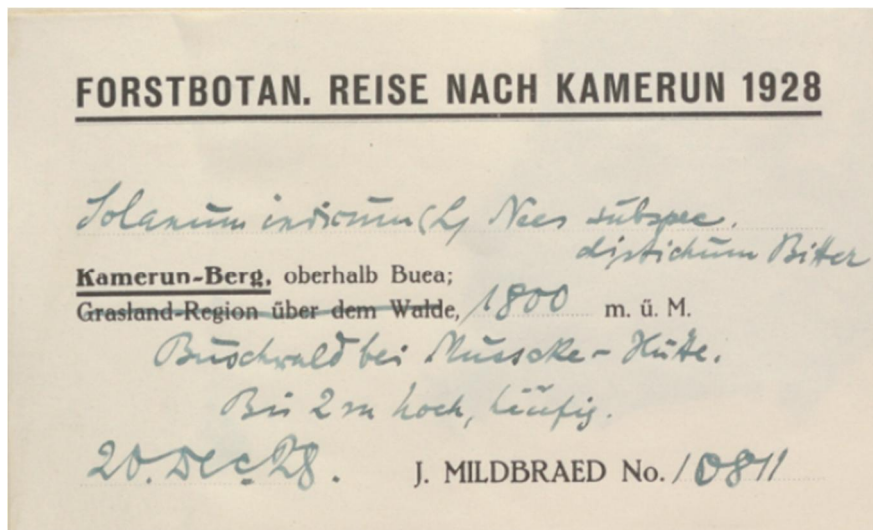 FORSTBOTAN. REISE NACH KAMERUN 1928
Solanum indicum (L) Nees subspec.
distichum Bitter
Kamerun-Berg, oberhalb Buea;
Grasland-Region über dem Walde, 1800 m. ü. M.
Buschwald bei Musake-Hütte.
Bis 2 m hoch, häufig.
20. Dec. 28. J. MILDBRAED No. 10811